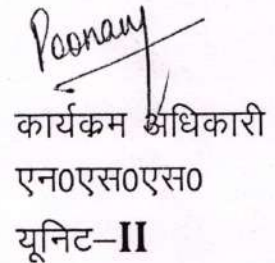 Poonam
कार्यक्रम अधिकारी
एन0एस0एस0
यूनिट–II